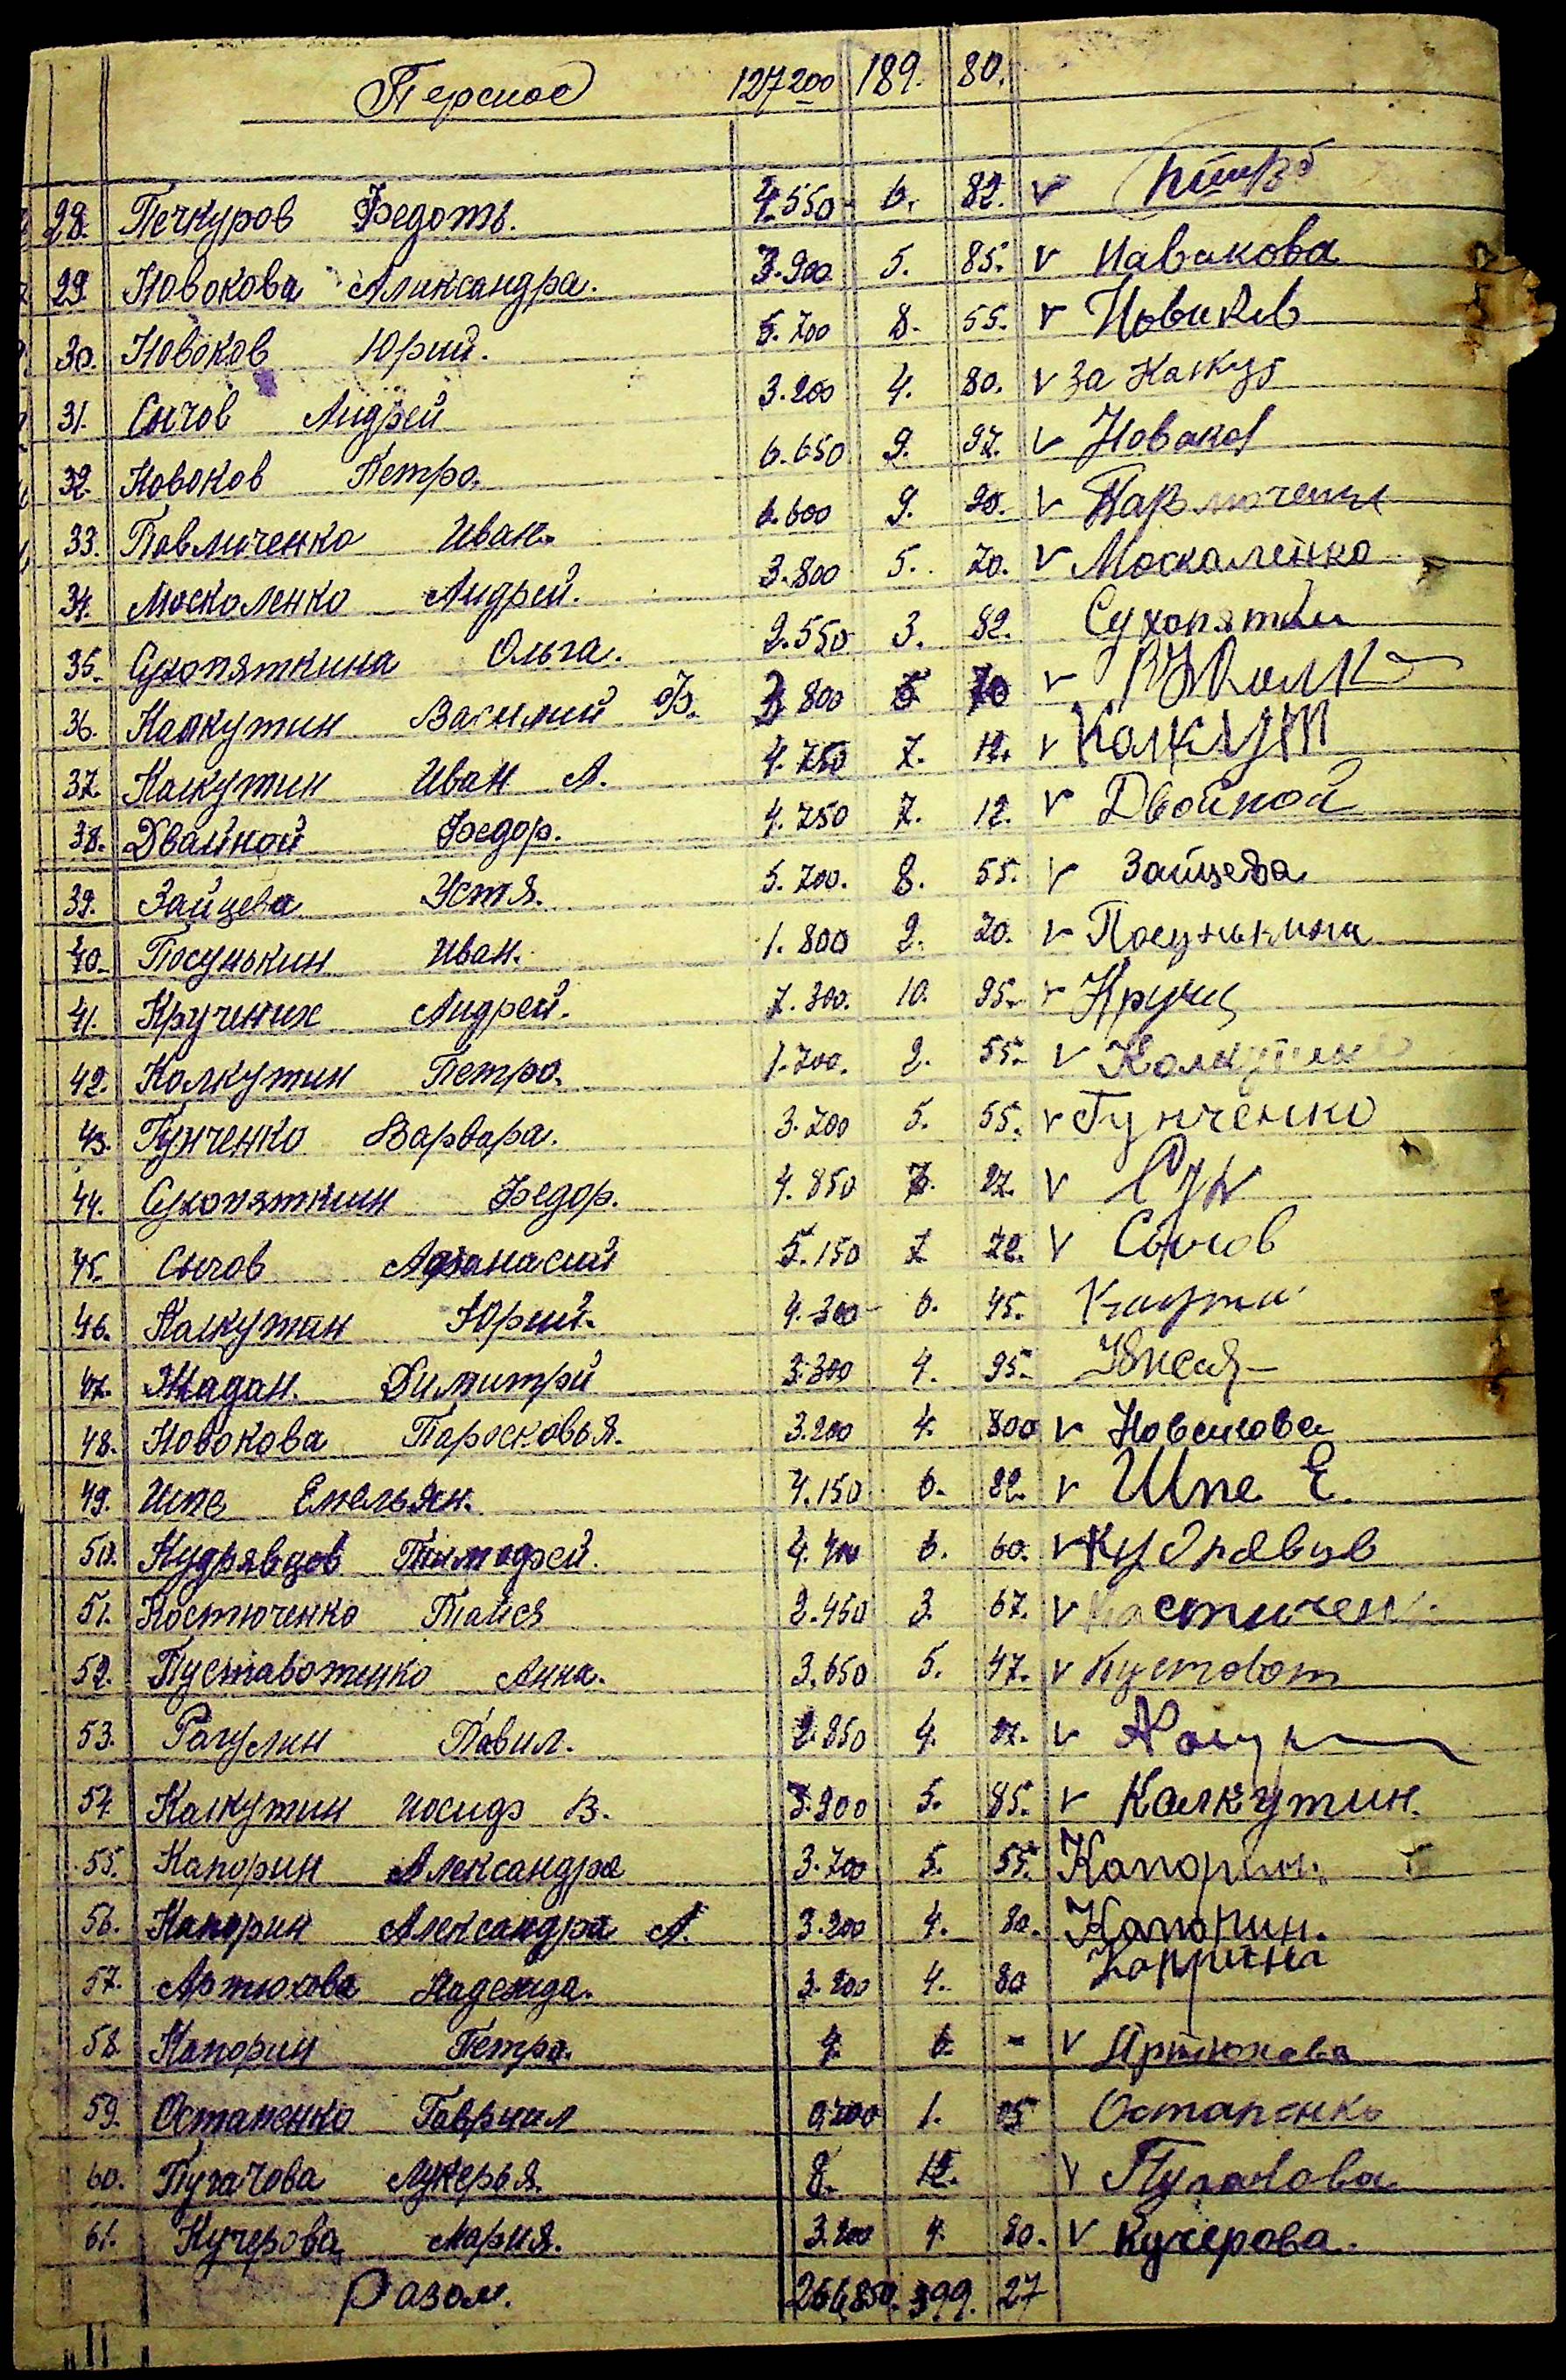 Перснос 127200 189. 80.
28. Печкуров Федоть. 4.550 6. 82. v
29. Новокова Александра. 3.900 5. 85. v Навакова
30. Новоков Юрий. 5.700 8. 55. v Новиков
31. Сычов Андрей 3.200 4. 80. v За Калкут
32. Новоков Петро. 6.650 9. 97. v Новаков
33. Повлюченко Иван. 6.600 9. 90. v
34. Москоленко Андрей. 3.800 5. 70. v Москаленко
35. Сухопяткина Ольга. 2.550 3. 82. Сухопятки
36. Калкутин Василий Ф. 3 800 5 70 v
37. Калкутин Иван А. 4.750 7. 12. v Калкут
38. Двайной Федор. 4.750 7. 12. v Двойной
39. Зайцева Устя. 5.700. 8. 55. v Зайцева
40. Посунькин Иван. 1.800 2. 70. v Посунькина
41. Кручених Андрей. 7.300. 10. 95. v Круч
42. Колкутин Петро. 1.700. 2. 55. v Колкутин
43. Гунченко Варвара. 3.700 5. 55. v Гунченко
44. Сухопяткин Федор. 4.850 7. 27. v Сух
45. Сычов Афанасий 5.150 7 72. v Сычов
46. Калкутин Юрий. 4.300 6. 45.
47. Жадан. Димитрий 3.300 4. 95.
48. Новокова Поросковья. 3.200 4. 800 v Новакова
49. Шпе Емельян. 4.150 6. 22. v Шпе Е.
50. Кудрявцов Тимофей. 4.400 6. 60. v Кудрявцв
51. Костюченко Тайся 2.450 3. 67. v Костючен
52. Пуставотенко Анна. 3.650 5. 47. v Пустовот
53. Рагулин Павил. 2.850 4. 27. v
54. Калкутин Иосиф В. 3.900 5. 85. v Калкутин.
55. Капорин Александра 3.700 5. 55. Капорин.
56. Капорин Александра А. 3.200 4. 80. Капорин.
57. Артюхова Надежда. 3.200 4. 80 Капорина
58. Капорин Петро. 4 6 - v Артюхова
59. Остапенко Гаврил 0.700 1. 05 Остапенко
60. Пугачова Лукерья. 8. 12. v Пугачова
61. Кучерова Мария. 3.200 4. 80. v Кучерова.
Разом. 266,850. 399. 27